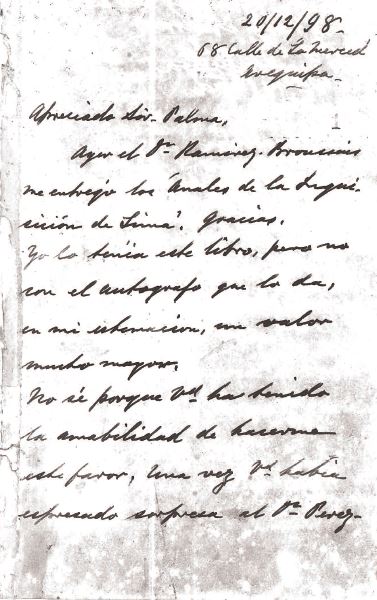 20/12/98.
68 Calle de La Merced
Arequipa.
Apreciado Sor. Palma,
Ayer el Dr. Ramirez Broussais
me entregó los "Anales de la Inqui-
sición de Lima". Gracias.
Yo lo tenía este libro, pero no
con el autografo que lo da,
en mi estimacion, un valor
mucho mayor.
No sé porque Vd ha tenido
la amabilidad de hacerme
este favor, Una vez Vd había
espresado sorpresa al Dr Perez